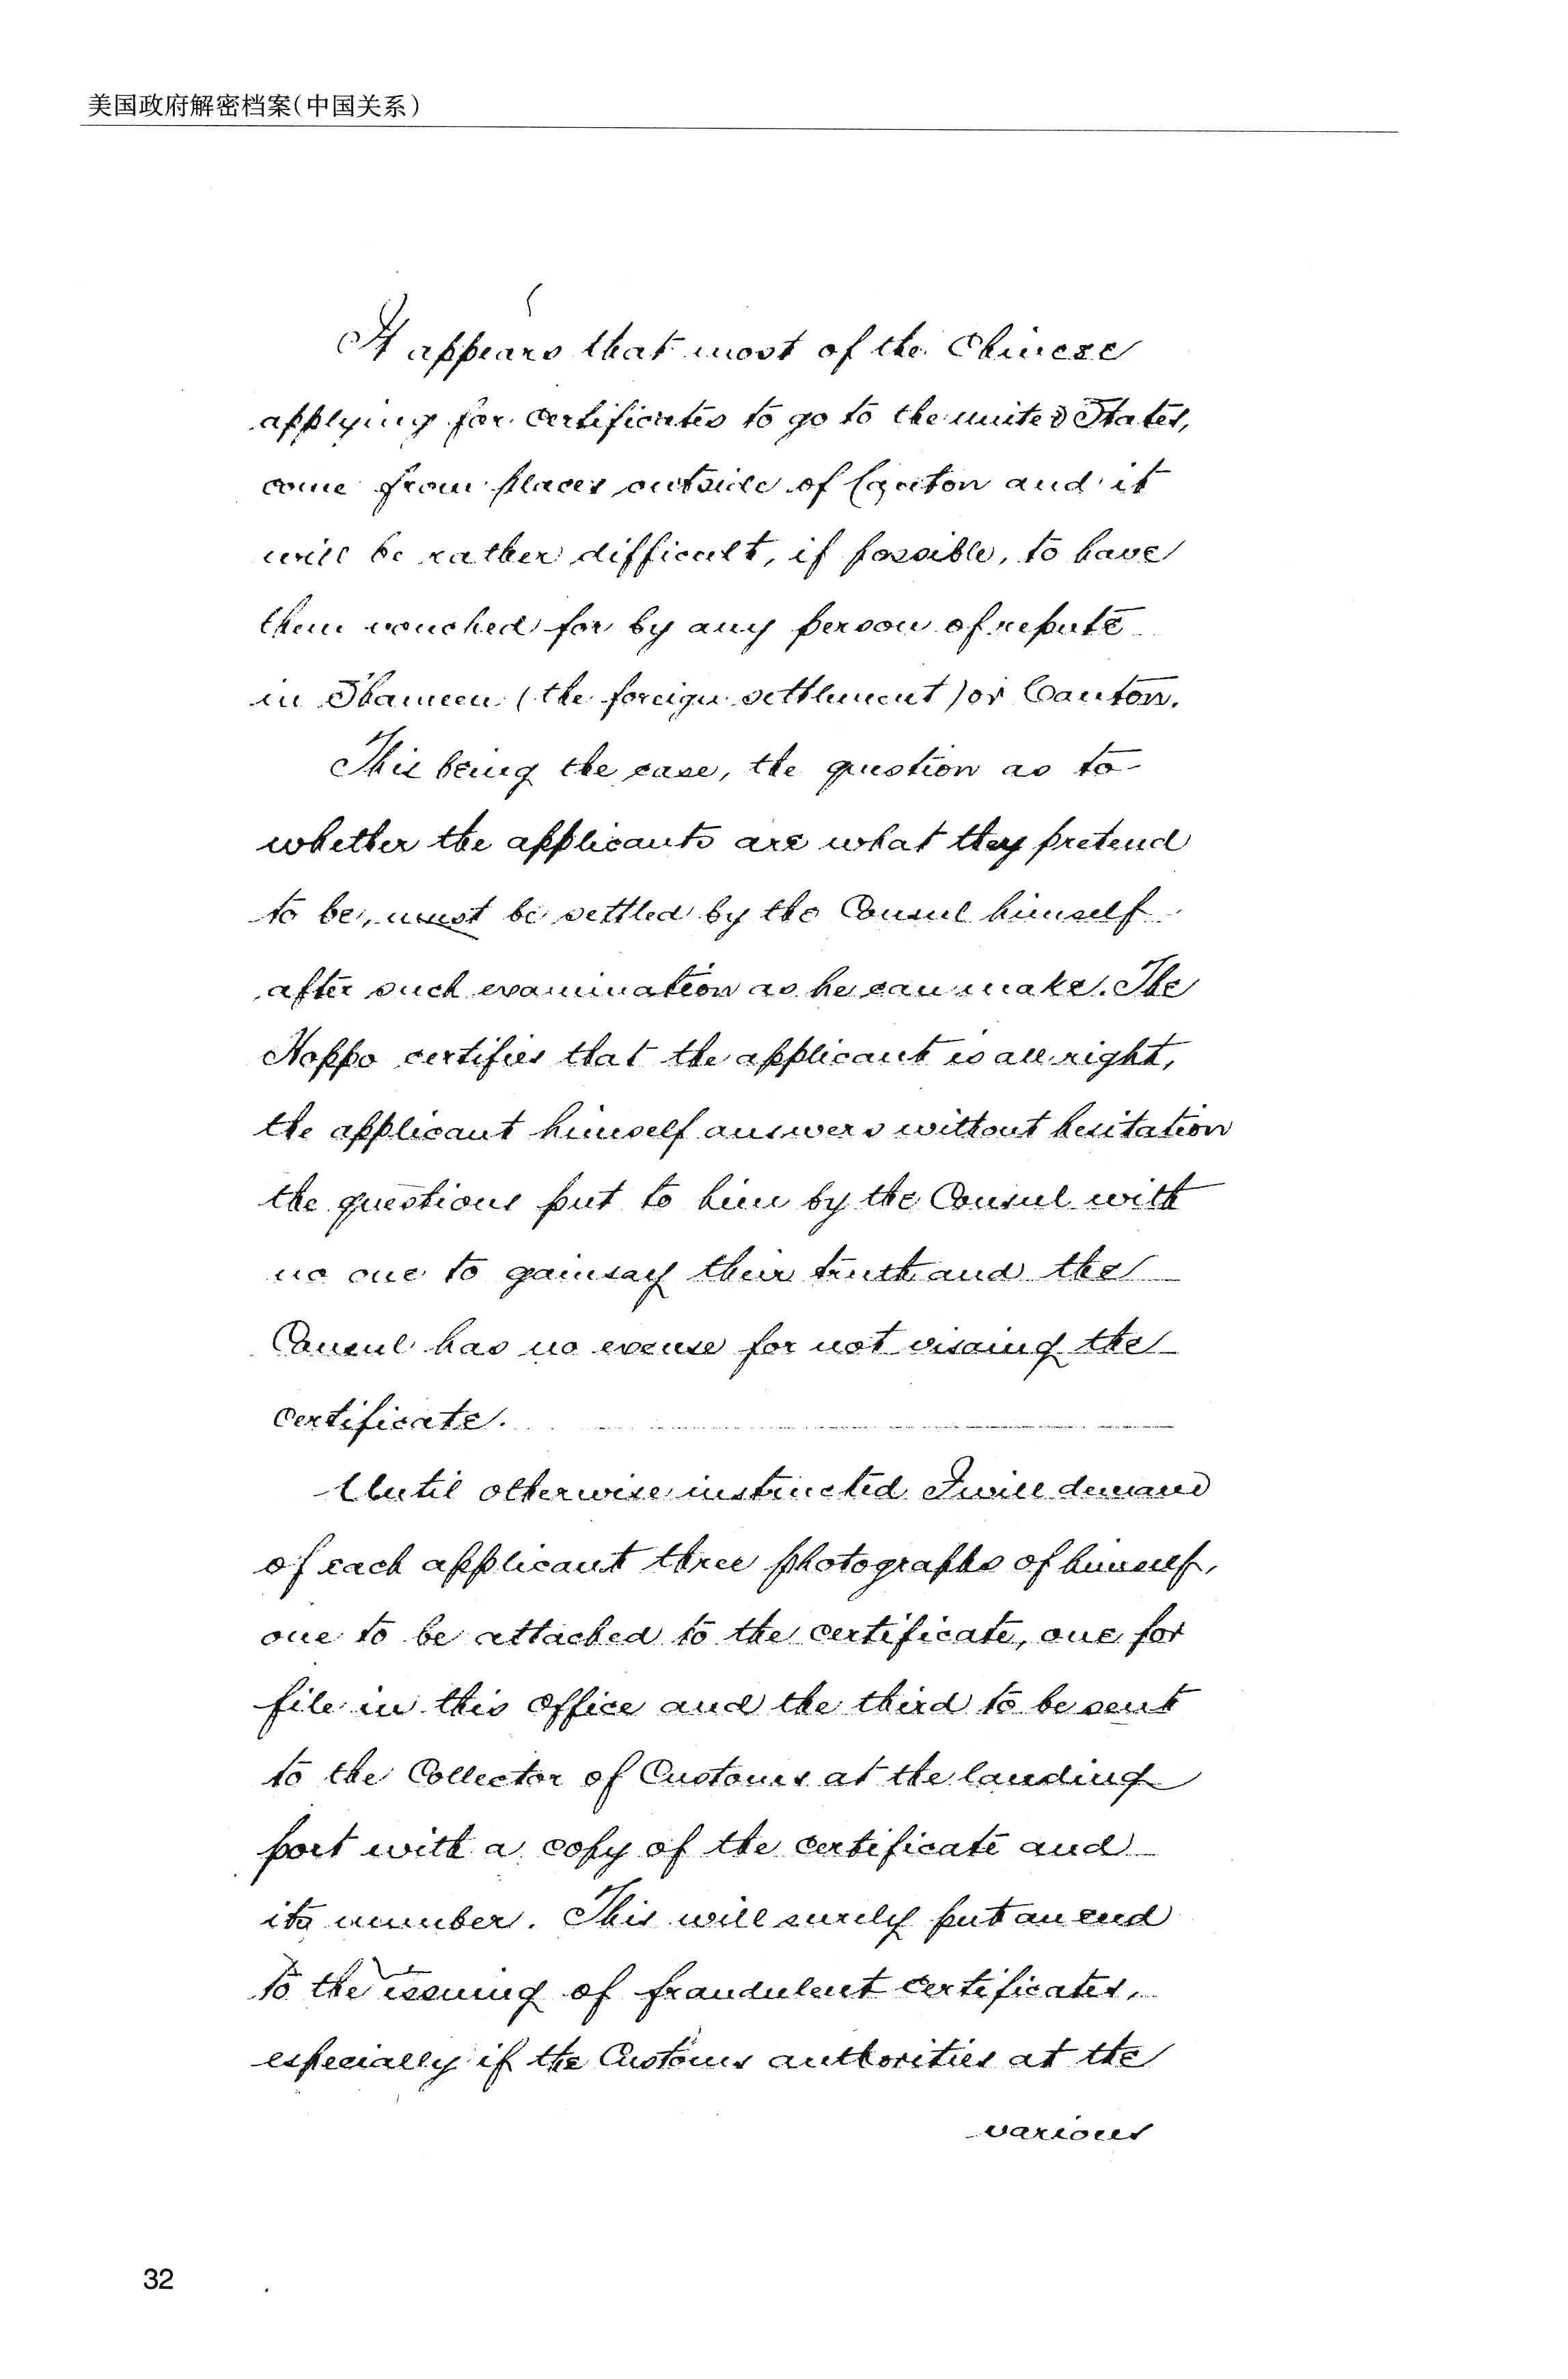 美国政府解密档案(中国关系)
It appears that most of the Chinese
applying for certificates to go to the united States,
come from places outside of Canton and it
will be rather difficult, if possible, to have
them vouched for by any person of repute
in Shameen (the foreign settlement) or Canton.
This being the case, the question as to
whether the applicants are what they pretend
to be, must be settled by the Consul himself
after such examination as he can make. The
Hoppo certifies that the applicant is all right,
the applicant himself answers without hesitation
the questions put to him by the Consul with
no one to gainsay their truth and the
Consul has no excuse for not visaing the
certificate.
Until otherwise instructed I will demand
of each applicant three photographs of himself,
one to be attached to the certificate, one for
file in this office and the third to be sent
to the Collector of Customs at the landing
port with a copy of the certificate and
its number. This will surely put an end
to the issuing of fraudulent certificates,
especially if the Customs authorities at the
various
32